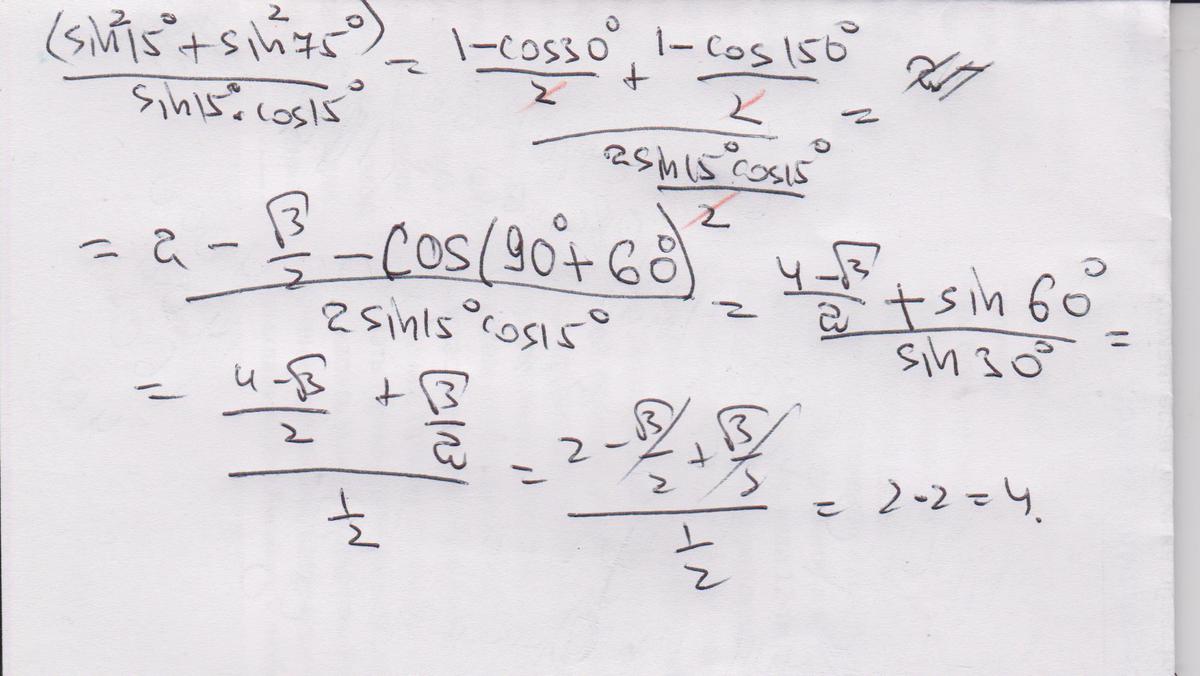 (sin²15° + sin²75°) / (sin15° · cos15°) = ((1-cos30°)/2 + (1-cos150°)/2) / ((2sin15°cos15°)/2) =
= (2 - √3/2 - cos(90° + 60°)) / (2sin15°cos15°) = ((4-√3)/2 + sin60°) / (sin30°) =
= ((4-√3)/2 + √3/2) / (1/2) = (2 - √3/2 + √3/2) / (1/2) = 2·2 = 4.